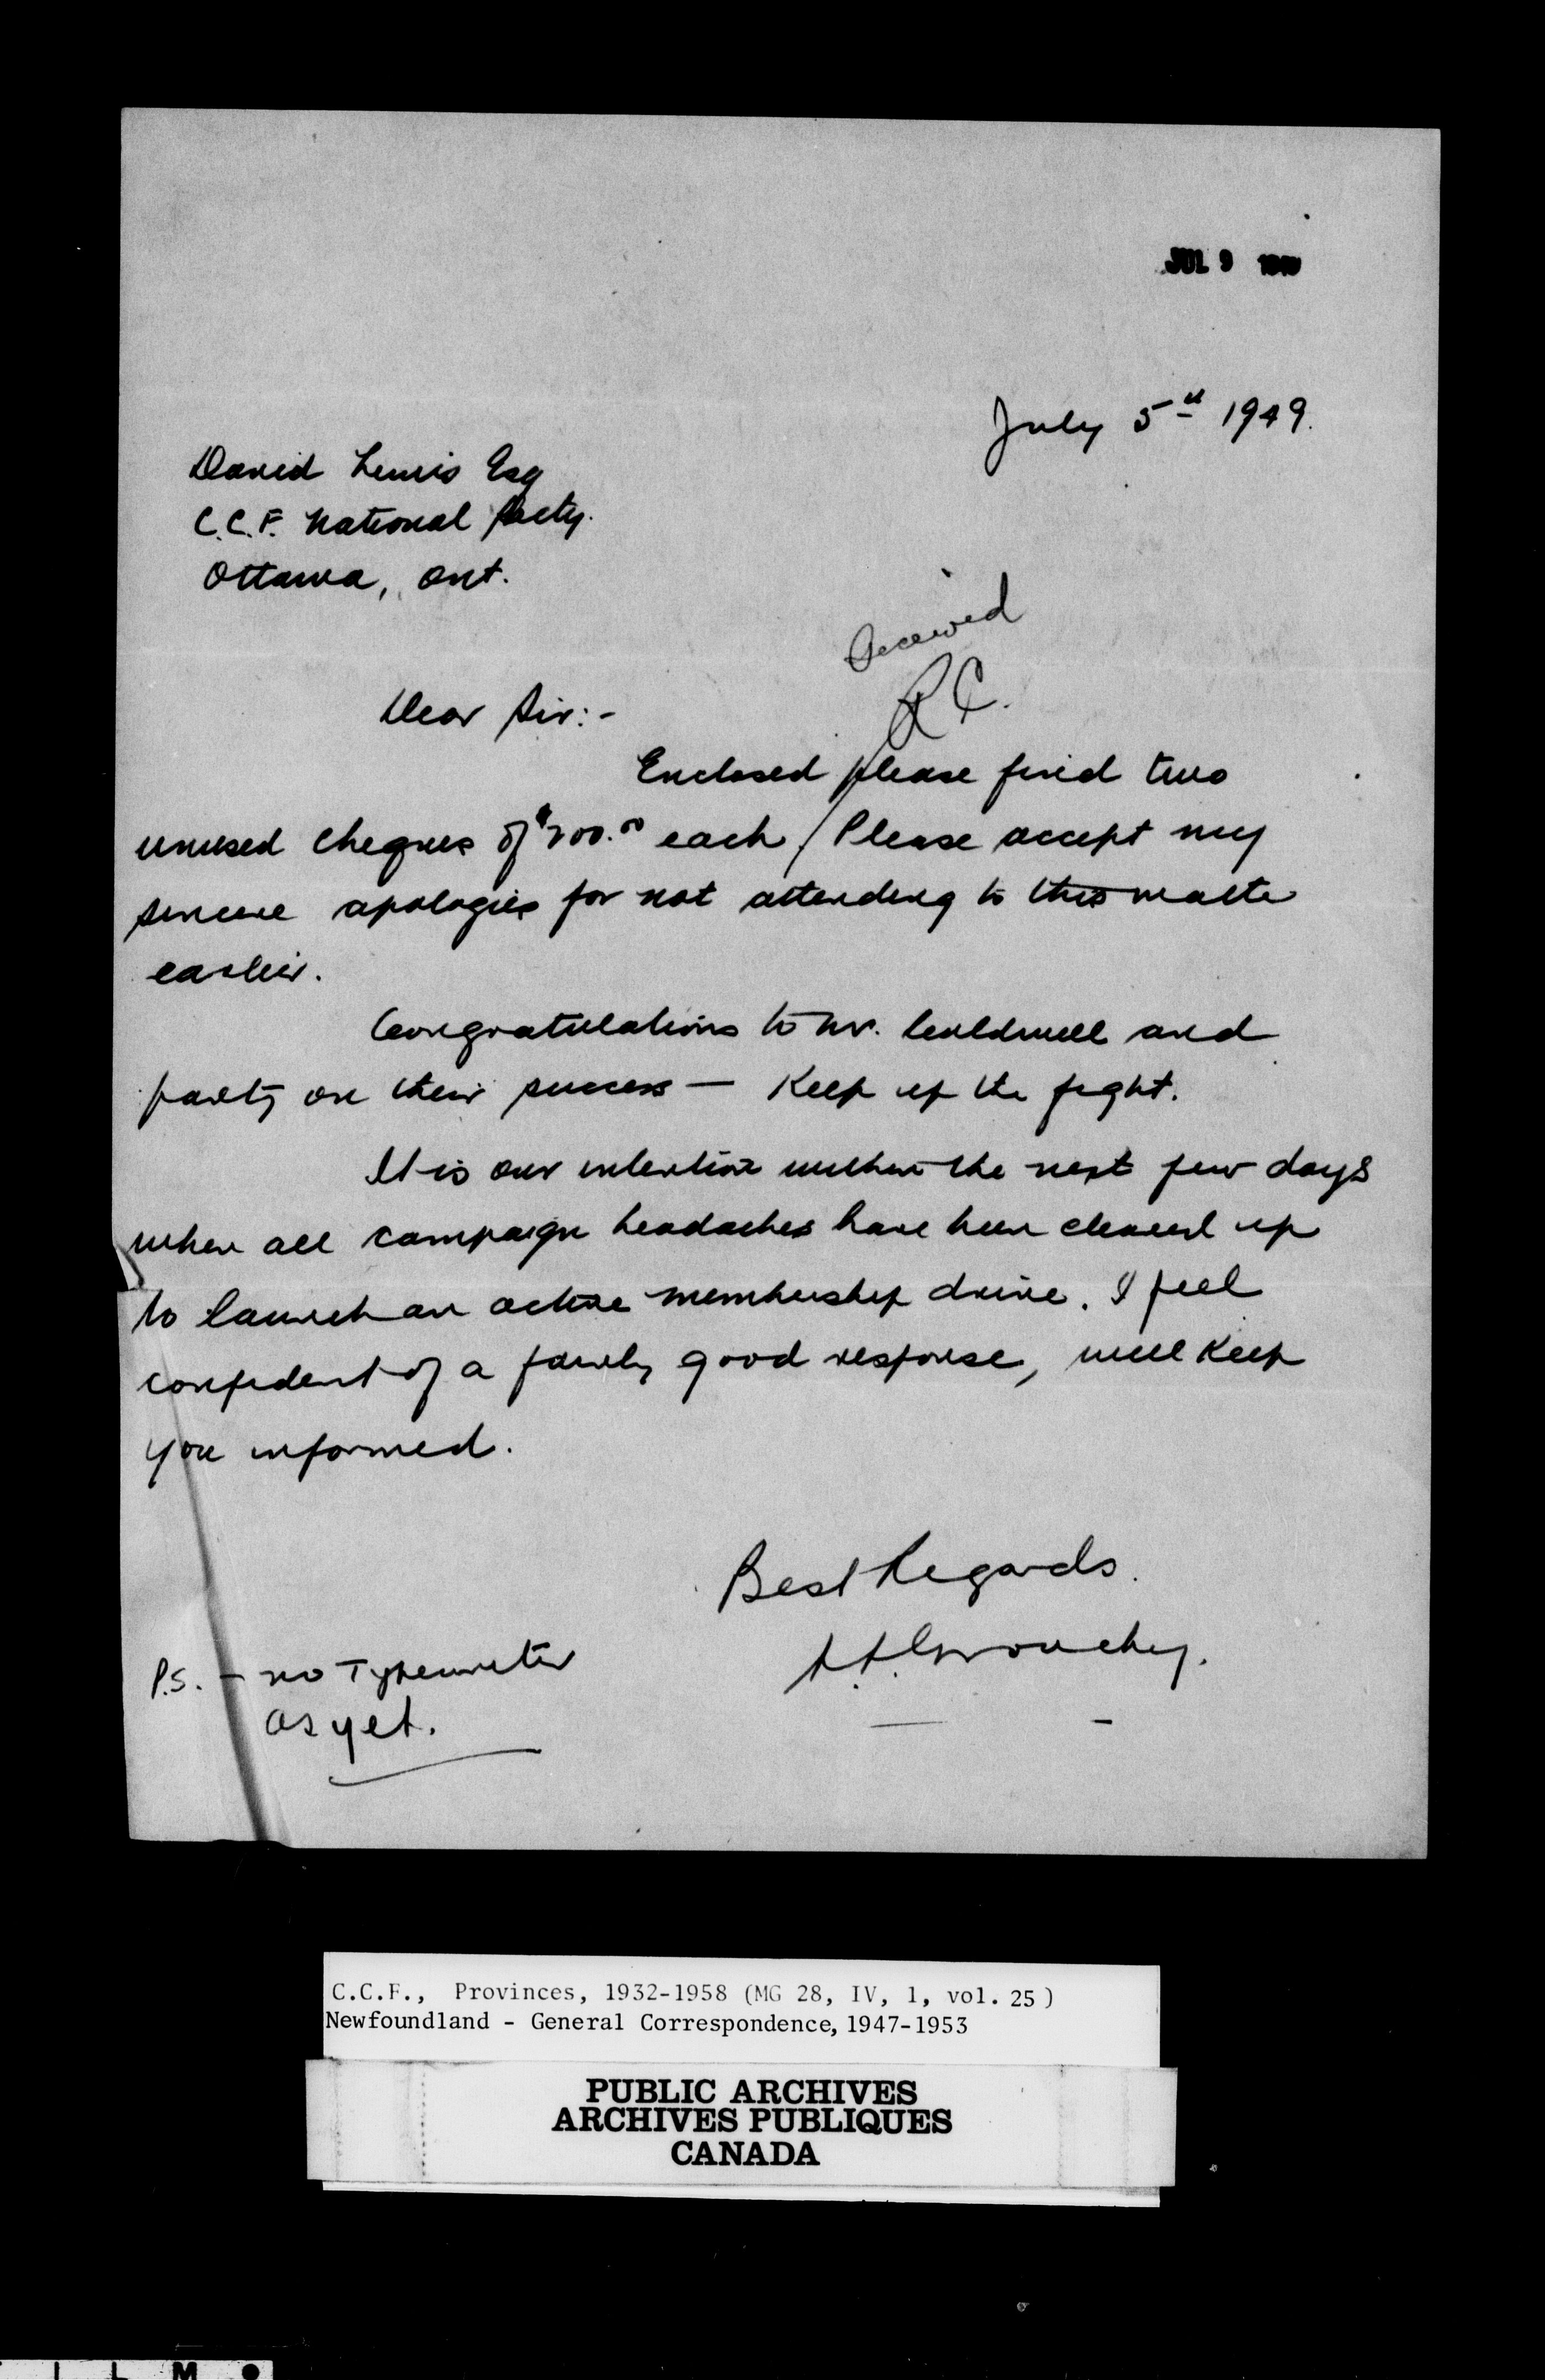 JUL 9 1949
July 5th 1949.
David Lewis Esq
C.C.F. National Party.
Ottawa, Ont.
Received
R C.
Dear Sir:-
Enclosed please find two
unused cheques of $200.00 each. Please accept my
sincere apologies for not attending to this matter
earlier.
Congratulations to Mr. Coldwell and
party on their success — Keep up the fight.
It is our intention within the next few days
when all campaign headaches have been cleared up
to launch an active membership drive. I feel
confident of a fairly good response, will keep
you informed.
Best Regards.
P.S. - no Typewriter
as yet.
C.C.F., Provinces, 1932-1958 (MG 28, IV, 1, vol. 25)
Newfoundland - General Correspondence, 1947-1953
PUBLIC ARCHIVES
ARCHIVES PUBLIQUES
CANADA